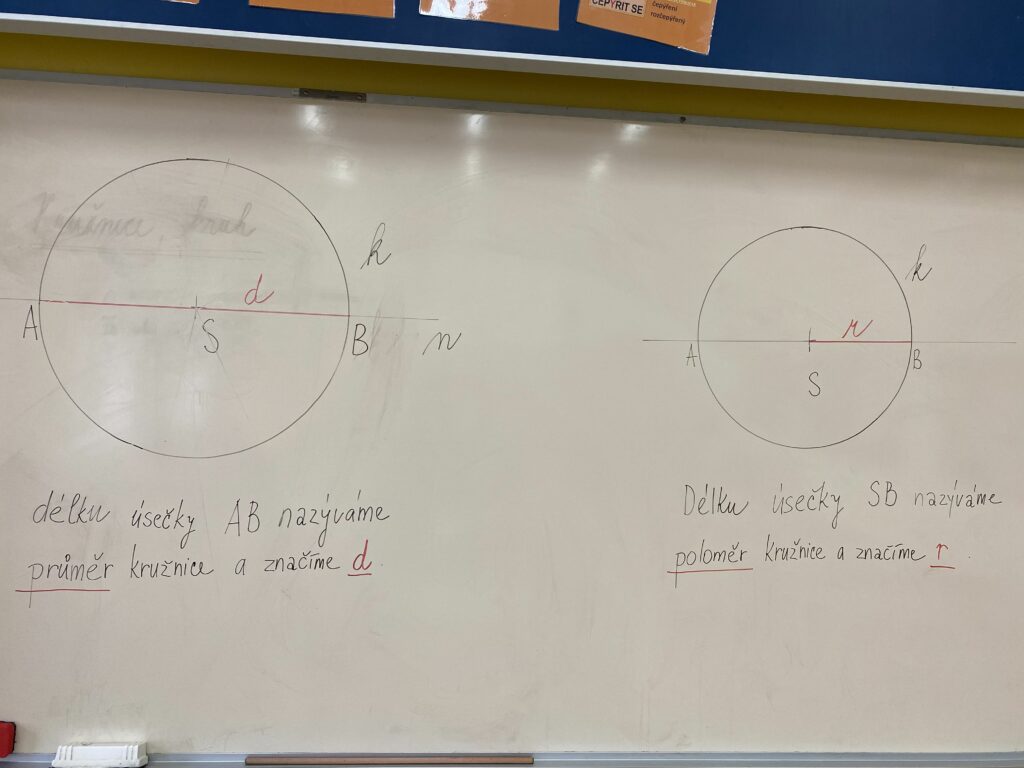 ČEPÝŘIT SE
čepýření
rozčepýřený
Kružnice, kruh
k
d
A
S
B
n
délku úsečky AB nazýváme
průměr kružnice a značíme d.
k
r
A
B
S
Délku úsečky SB nazýváme
poloměr kružnice a značíme r.